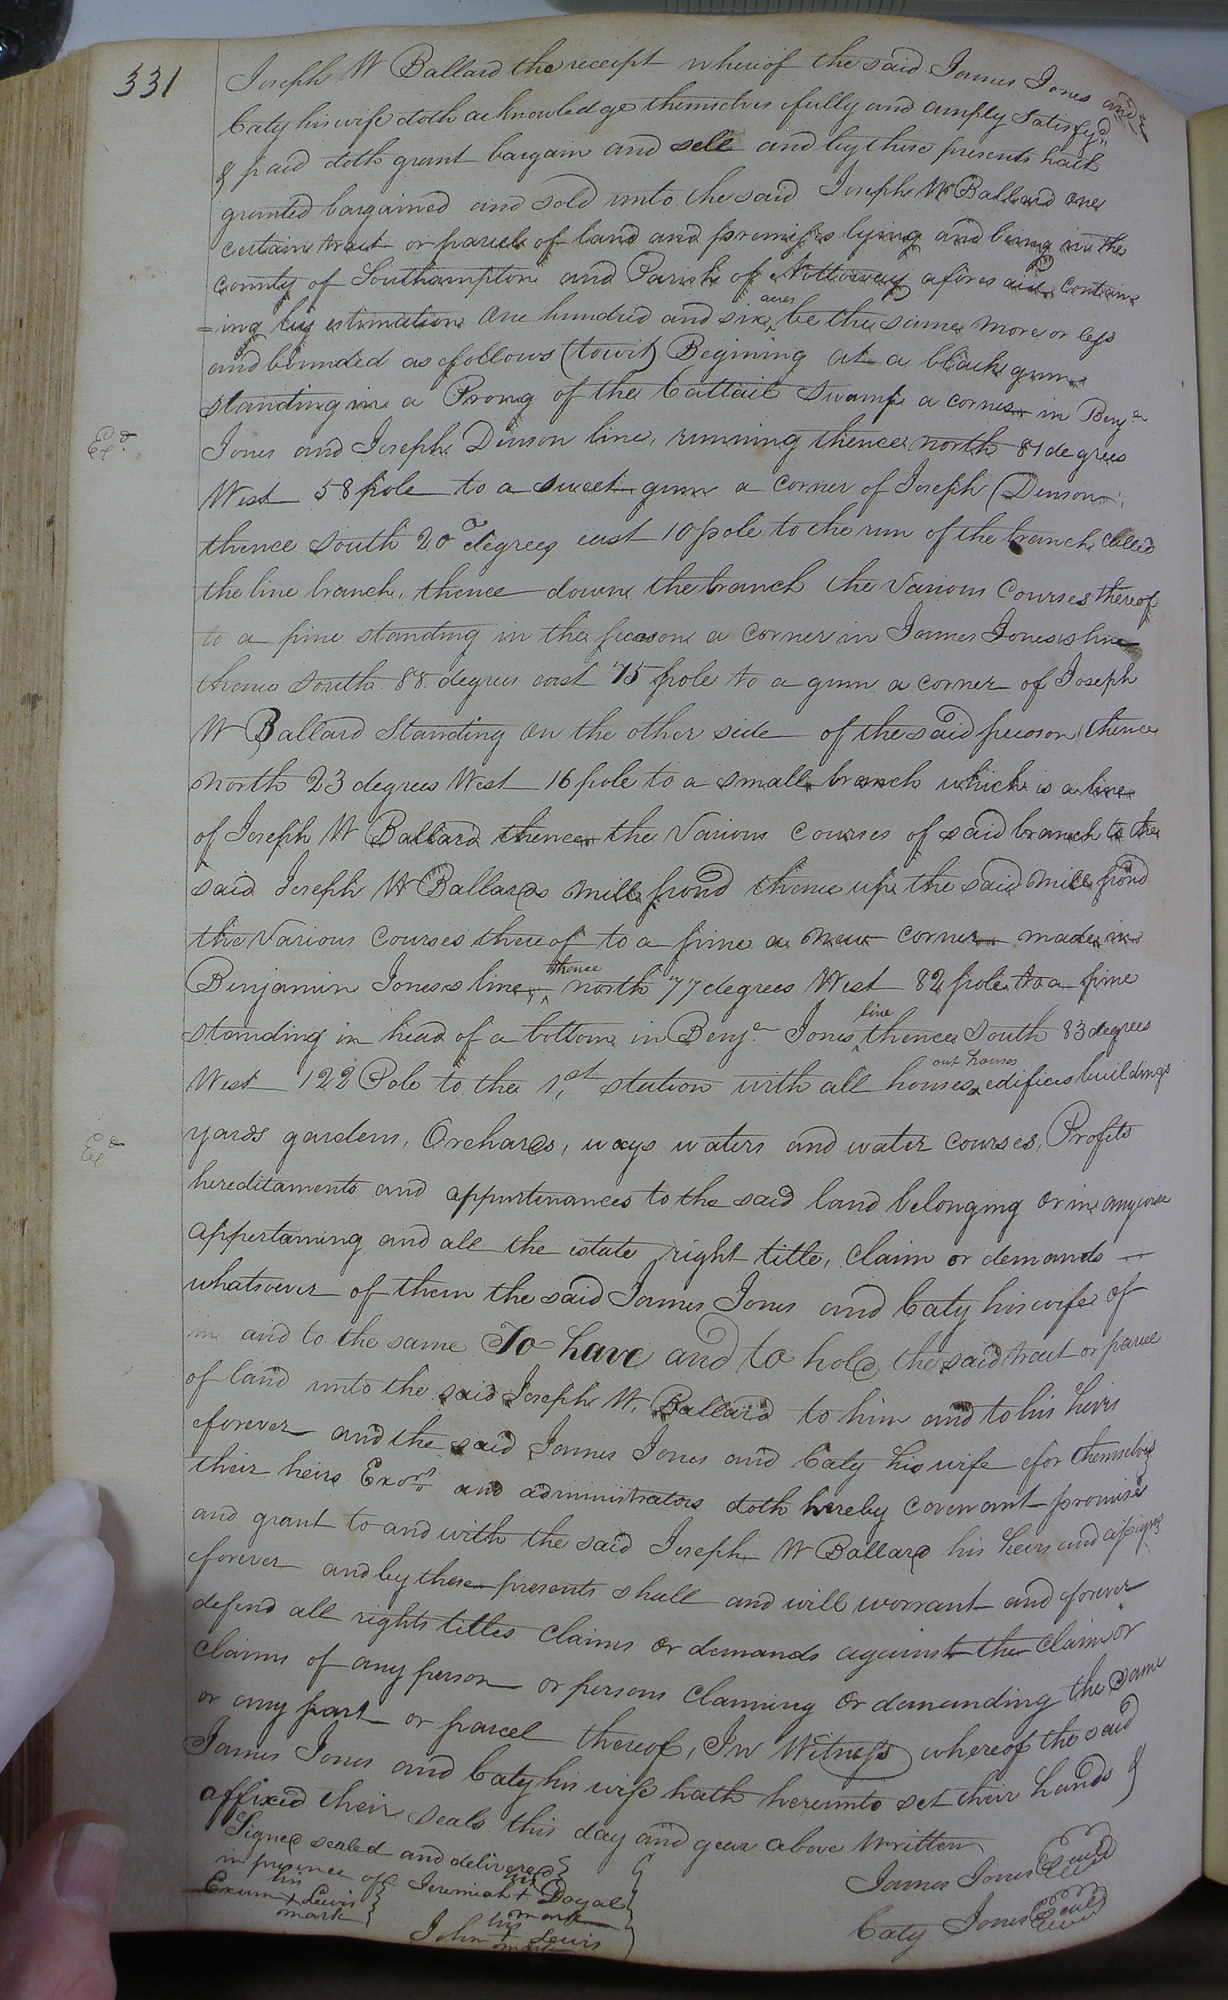 331
Joseph W Ballard the receipt whereof the said James Jones and
Caty his wife doth acknowledge themselves fully and amply satisfy'd
& paid doth grant bargain and sell and by these presents hath
granted bargained and sold unto the said Joseph W Ballard one
certain tract or parcel of land and premises lying and being in the
county of Southampton and Parish of Nottoway aforesaid contain
=ing by estimation one hundred and six acres be the same more or less
and bounded as follows (towit) Begining at a black gum
standing in a Prong of the Cattail Swamp a corner in Benjn
Exd
Jones and Joseph Denson line, running thence north 81 degrees
West 58 pole to a sweet gum a corner of Joseph Denson,
thence south 20 degrees east 10 pole to the run of the branch called
the line branch, thence down the branch the various courses thereof
to a pine standing in the pecoson a corner in James Joneses line
thence south 88 degrees east 75 pole to a gum a corner of Joseph
W Ballard standing on the other side of the said pecoson thence
north 23 degrees West 16 pole to a small branch which is a line
of Joseph W Ballard thence the various courses of said branch to the
said Joseph W Ballards mill pond thence up the said mill pond
the various courses thereof to a pine a new corner made in
Benjamin Joneses line, thence north 77 degrees West 82 pole to a pine
standing in head of a bottom in Benjn Jones line thence south 83 degrees
West 122 Pole to the 1st station with all houses out houses edifices buildings
Exd
yards gardens, Orchards, ways waters and water courses, Profits
hereditaments and appurtenances to the said land belonging or in any wise
appertaining and all the estate right title, claim or demands —
whatsoever of them the said James Jones and Caty his wife of
in and to the same To have and to hold the said tract or parcel
of land unto the said Joseph W. Ballard to him and to his heirs
forever and the said James Jones and Caty his wife for themselves
their heirs Exors and administrators doth hereby covenant promise
and grant to and with the said Joseph W Ballard his heirs and assigns
forever and by these presents shall and will worrant and forever
defend all rights titles claims or demands against the claim or
claims of any person or persons claiming or demanding the same
or any part or parcel thereof, In Witness whereof the said
James Jones and Caty his wife hath hereunto set their hands &
affixed their seals this day and year above written
Signed sealed and delivered
in presence of
James Jones Seal
Jeremiah his + mark Doyal
Exum his + mark Lewis
Caty Jones Seal
John his + mark Lewis